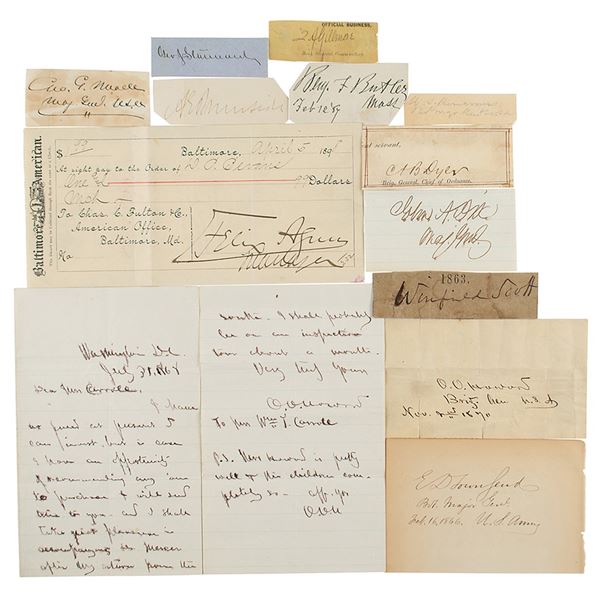 OFFICIAL BUSINESS.
Q A Gillmore
Geo. J. Stannard
Geo. G. Meade
Maj Genl. U.S.A.
A E Burnside
Benj F Butler
Feb 12 '89
Mass
Baltimore American.
$
Baltimore, April 5 189
At sight pay to the Order of
One &
Dollars
To Chas. C. Fulton & Co.,
American Office,
Baltimore, Md.
No
Felix Agnus
Manager
servant,
A B Dyer
Brig. General, Chief of Ordnance.
John A. Dix
Maj. Genl.
1863.
Winfield Scott
Washington D.C.
July 31 1868
Dear Mrs Carroll.
I have
no fund at present I
can invest but in case
I have an opportunity
of recommending any one
to purchase I will send
him to you. and I shall
take great pleasure in
accompanying Mr. Mercer
after my return from the
South. I shall probably
be on an inspection
tour about a month.
Very truly yours
O.O. Howard
To Mrs Wm T. Carroll
P.S. Mrs Howard is pretty
well & the children com-
pletely so - aff. yrs
O.O.H
O. O. Howard
Brig Gen U.S.A
Nov. 2nd 1870
E D Townsend
Bt. Major Genl.
Feb. 16, 1866. U.S. Army